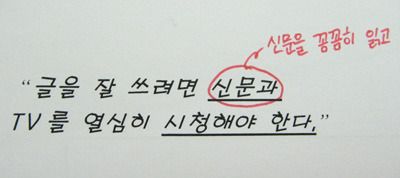 신문을 꼼꼼히 읽고
“글을 잘 쓰려면 신문과
TV를 열심히 시청해야 한다.”